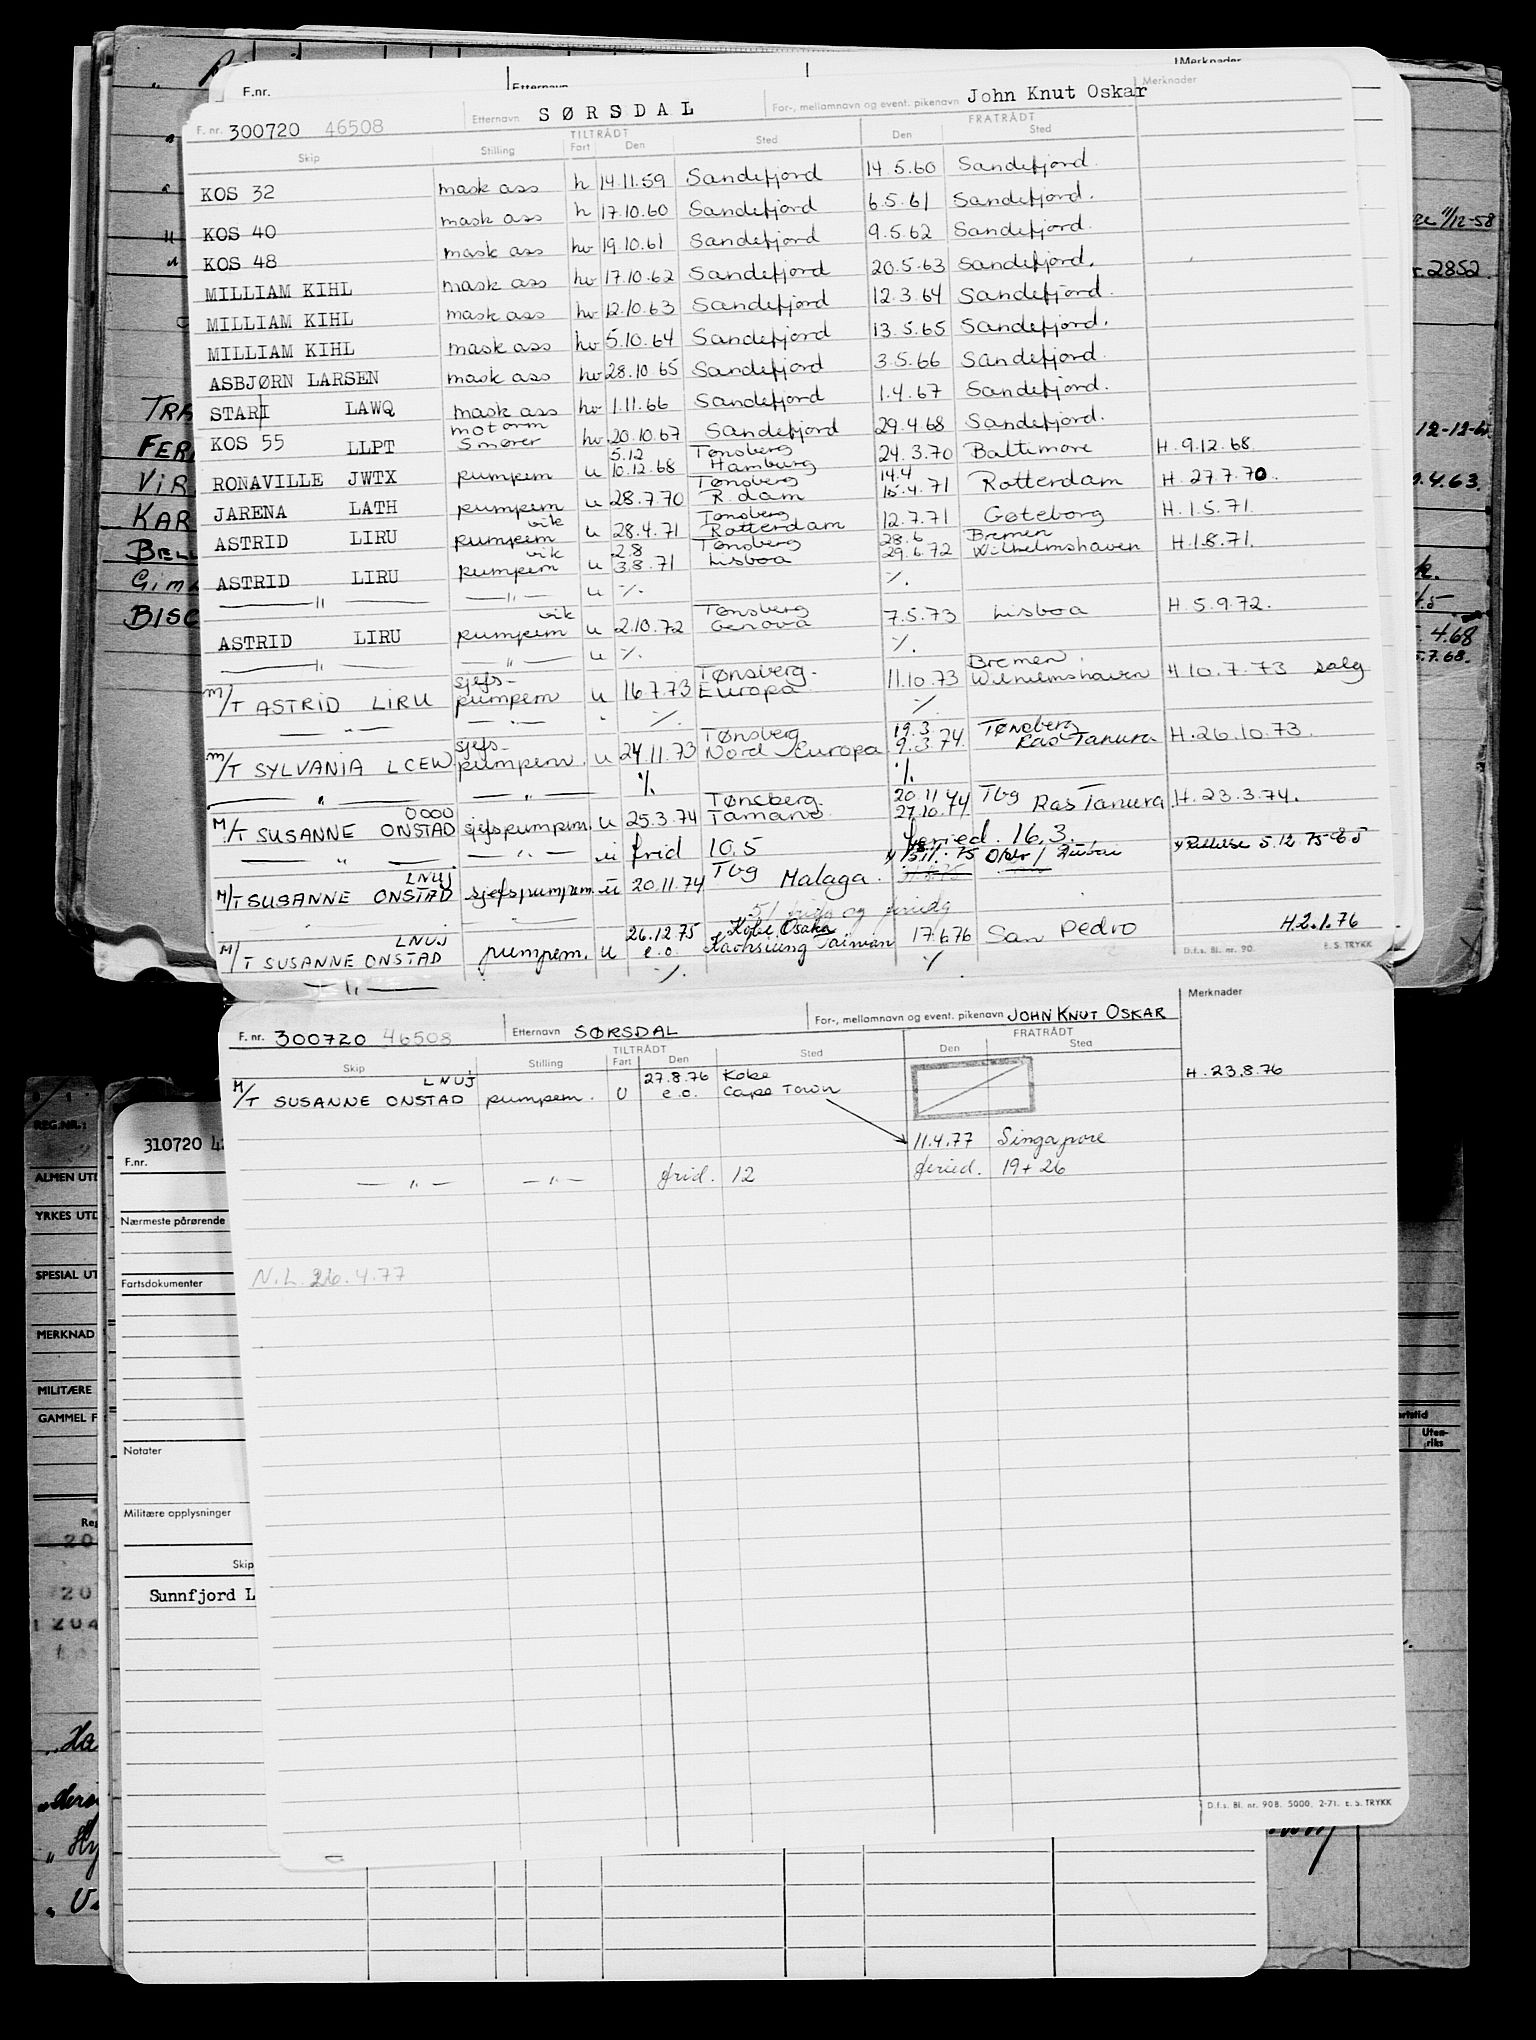 Merknader
F.nr.
Etternavn
F. nr. 300720 46508 Etternavn SØRSDAL For-, mellomnavn og event. pikenavn John Knut Oskar Merknader
TILTRÅDT FRATRÅDT
Skip Stilling Fart Den Sted Den Sted
KOS 32 mask ass h 14.11.59 Sandefjord 14.5.60 Sandefjord.
KOS 40 mask ass h 17.10.60 Sandefjord 6.5.61 Sandefjord.
KOS 48 mask ass hv 19.10.61 Sandefjord 9.5.62 Sandefjord.
MILLIAM KIHL mask ass hv 17.10.62 Sandefjord 20.5.63 Sandefjord.
MILLIAM KIHL mask ass hv 12.10.63 Sandefjord 12.3.64 Sandefjord.
MILLIAM KIHL mask ass hv 5.10.64 Sandefjord 13.5.65 Sandefjord.
ASBJØRN LARSEN mask ass hv 28.10 65 Sandefjord 3.5.66 Sandefjord.
STARI LAWQ mask ass hv 1.11.66 Sandefjord 1.4.67 Sandefjord.
motorm
KOS 55 LLPT Smører hv 20.10.67 Sandefjord 29.4.68 Sandefjord.
5.12 Tønsberg
RONAVILLE JWTX pumpem u 10.12.68 Hamburg 24.3.70 Baltimore H. 9.12.68
Tønsberg 14.4
JARENA LATH pumpem u 28.7.70 R.dam 15.4.71 Rotterdam H. 27.7.70
vik Tønsberg
ASTRID LIRU pumpem u 28.4.71 Rotterdam 12.7.71 Gøteborg H.1.5.71
vik 2.8 Tønsberg 28.6 Bremen
ASTRID LIRU pumpem u 3.8.71 Lisboa 29.6.72 Wilhelmshaven H.1.8.71.
— " — — " — u %. %.
vik Tønsberg
ASTRID LIRU pumpem u 2.10.72 Genova 7.5.73 Lisboa H.5.9.72.
— " — — " — u %. %.
sjefs- Tønsberg. Bremen.
M/T ASTRID LIRU pumpem u 16.7.73 Europa 11.10.73 Wilhelmshaven H.10.7.73 salg
— " — — " — " %. %.
sjefs- Tønsberg 19.3. Tønsberg
M/T SYLVANIA LCEW pumpem. u 24.11.73 Nord Europa 9.3.74. Ras Tanura H.26.10.73.
— " — — " — %. %.
OOOO Tønsberg. 20 11
M/T SUSANNE ONSTAD sjefspumpem. u 25.3.74 Tamano. 27.10.74 Tbg Ras Tanura H.23.3.74.
— " — — " — u frid 10.5 feried. 16.3.
LNUJ
M/T SUSANNE ONSTAD sjefspumpem. u 20.11.74 Tbg Malaga. 15.11.75 Dubai x) Rettelse 5.12.75
— " — 51 frid og feriedg
LNUJ 26.12.75 Kobe Osaka
M/T SUSANNE ONSTAD pumpem. u e.o. Kaohsiung Taiwan 17.6.76 San Pedro H.2.1.76
— " — %. %.
D.f.s. Bl. nr. 90. E. S. TRYKK
F. nr. 300720 46508 Etternavn SØRSDAL For-, mellomnavn og event. pikenavn JOHN KNUT OSKAR Merknader
TILTRÅDT FRATRÅDT
Skip Stilling Fart Den Sted Den Sted
LNUJ 27.8.76 Kobe H.23.8.76
M/T SUSANNE ONSTAD pumpem. U e.o. Cape Town
11.4.77 Singapore
— " — — " — frid. 12 feried. 19+26
N.L. 26.4.77
D.f.s. Bl. nr. 90B. 5000. 2-71. E. S. TRYKK
TRA
FER
VIR
KAR
BELL
Gim
BISC
11/12-58
2852
12-12-6
.4.63.
4.68
5.7.68.
REG.NR.:
ALMEN UTD
YRKES UTD
SPESIAL UT
MERKNAD
MILITÆRE
GAMMEL F
Reg
310720
F.nr.
Nærmeste pårørende
Fartsdokumenter
Notater
Militære opplysninger
Skip
Sunnfjord L
Uten-
riks